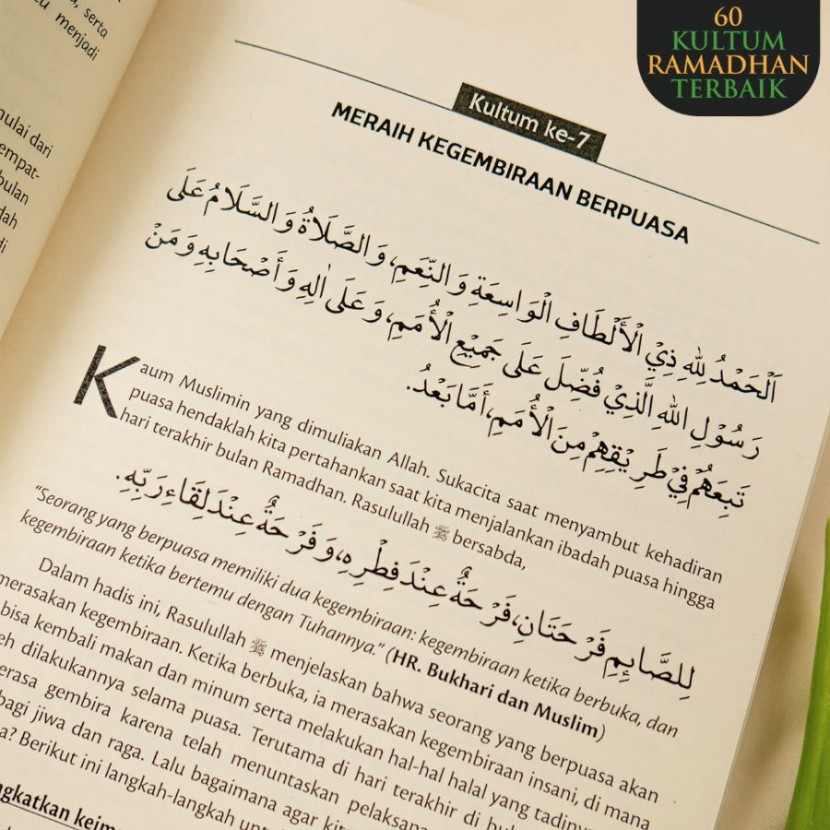 60
KULTUM
RAMADHAN
TERBAIK
serta
menjadi
mulai dari
empat-
bulan
Kultum ke-7
MERAIH KEGEMBIRAAN BERPUASA
اَلْحَمْدُ لِلّٰهِ ذِيْ الْأَلْطَافِ الْوَاسِعَةِ وَالنِّعَمِ، وَالصَّلَاةُ وَالسَّلَامُ عَلَى
رَسُوْلِ اللهِ الَّذِيْ فُضِّلَ عَلَى جَمِيْعِ الْأُمَمِ، وَعَلَى اٰلِهِ وَأَصْحَابِهِ وَمَنْ
تَبِعَهُمْ فِيْ طَرِيْقِهِمْ مِنَ الْأُمَمِ، أَمَّا بَعْدُ.
Kaum Muslimin yang dimuliakan Allah. Sukacita saat menyambut kehadiran
puasa hendaklah kita pertahankan saat kita menjalankan ibadah puasa hingga
hari terakhir bulan Ramadhan. Rasulullah ﷺ bersabda,
لِلصَّايِٕمِ فَرْحَتَانِ، فَرْحَةٌ عِنْدَ فِطْرِهِ، وَفَرْحَةٌ عِنْدَ لِقَاءِ رَبِّهِ.
“Seorang yang berpuasa memiliki dua kegembiraan: kegembiraan ketika berbuka, dan
kegembiraan ketika bertemu dengan Tuhannya.” (HR. Bukhari dan Muslim)
Dalam hadis ini, Rasulullah ﷺ menjelaskan bahwa seorang yang berpuasa akan
merasakan kegembiraan. Ketika berbuka, ia merasakan kegembiraan insani, di mana
bisa kembali makan dan minum serta melakukan hal-hal halal yang tadinya
dilakukannya selama puasa. Terutama di hari terakhir di
gembira karena telah menuntaskan
jiwa dan raga. Lalu bagaimana agar
Berikut ini langkah-langkah